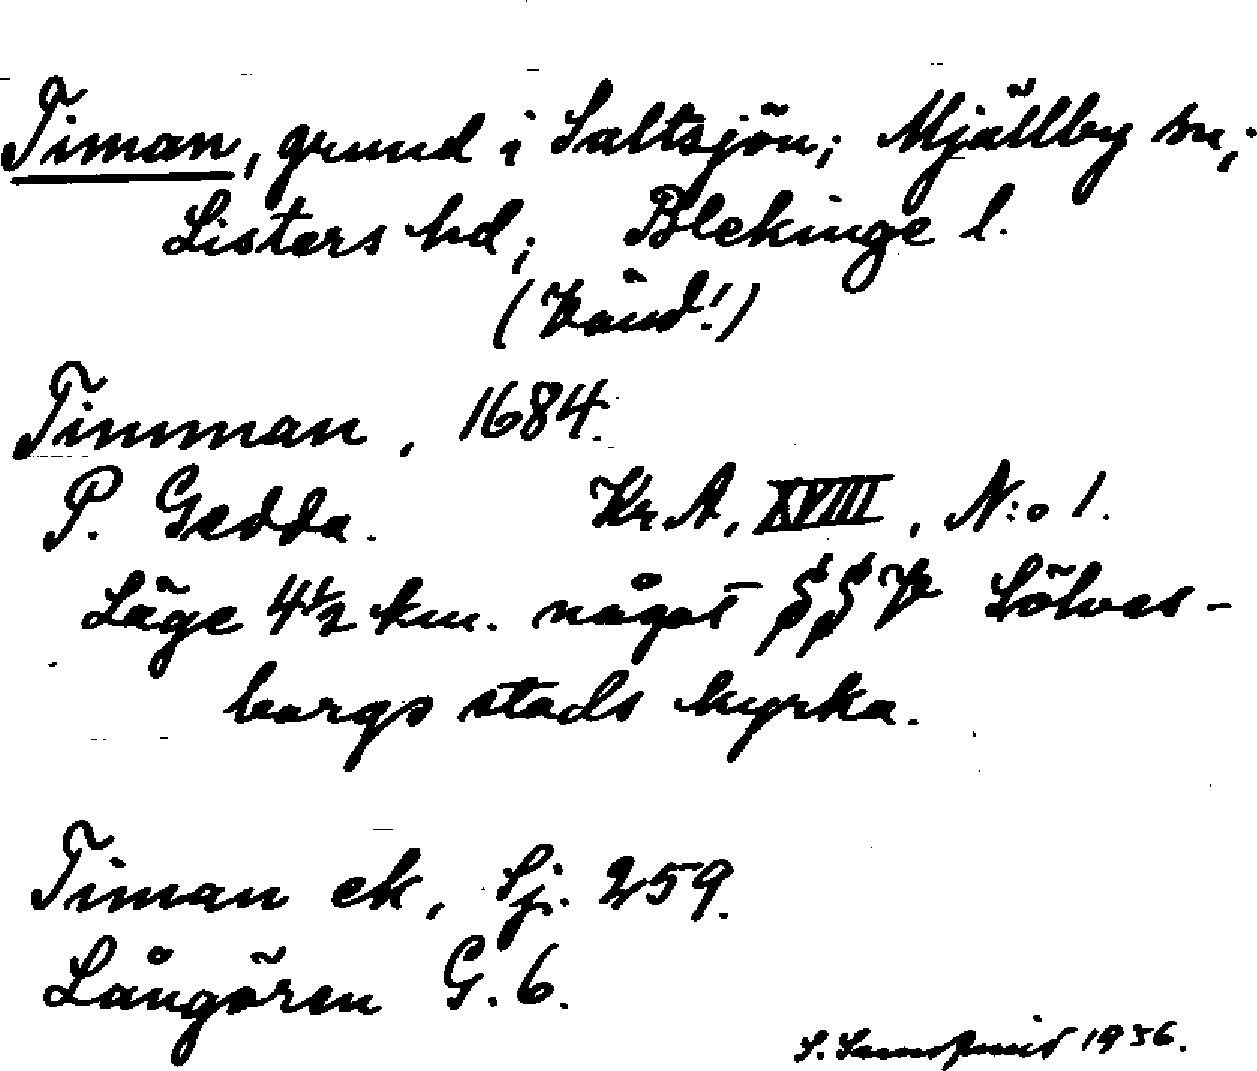 Timan, grund i Saltsjön; Mjällby sn;
Listers hd; Blekinge l.
(Vänd!)
Timman, 1684.
P. Gedda. Kr.A, XVIII, N:o 1.
Läge 4½ km. något SSV Sölves-
borgs stads kyrka.
Timan ek, Sj. 259.
Långören G. 6.
S. 1936.